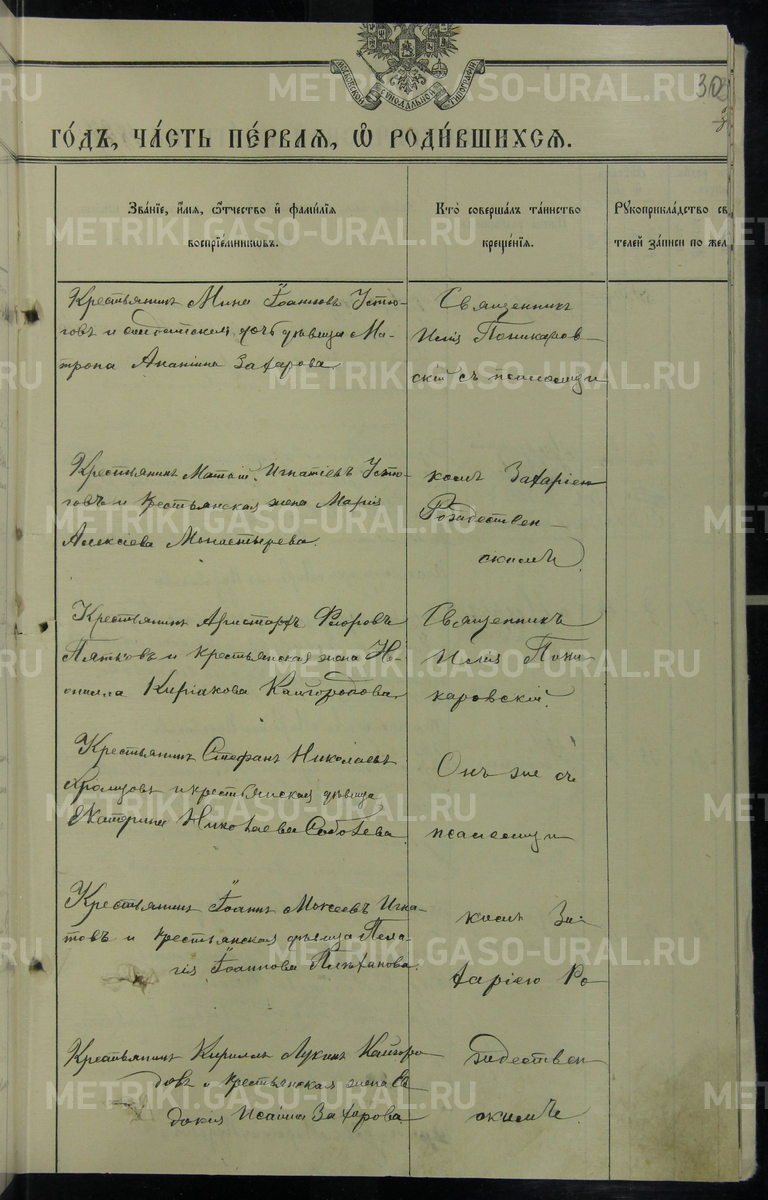 МОСКОВСКОЙ СѴНОДАЛЬНОЙ ТИПОГРАФІИ
302
ГО́ДЪ, ЧА́СТЬ ПЕ́РВАЯ, Ѡ҆ РОДИ́ВШИХСЯ.
Зва́нїе, и҆́мя, ѻ҆́тчество и҆ фами́лїя
воспрїе́мникѡвъ.
Кто̀ соверша́лъ та́инство
креще́нїя.
Рꙋкоприкла́дство св
те́лей за́писи по жел
Крестьянинъ Мина Іоанновъ Устю-
говъ и солдатская дочь дѣвица Ма-
трона Ананіина Захарова
Священникъ
Илія Поникаров-
скій съ псаломщи
Крестьянинъ Матѳій Игнатіевъ Устю-
говъ и крестьянская жена Марія
Алексіева Монастырева.
комъ Захаріею
Рождествен-
скимъ.
Крестьянинъ Аристархъ Ѳеодоровъ
Пятковъ и крестьянская жена Не-
онилла Киріакова Кайгородова
Священникъ
Илія Пони
каровскій.
Крестьянинъ Стефанъ Николаевъ
Хромцовъ и крестьянская дѣвица
Екатерина Николаева Соболева
Онъ же съ
псаломщи
Крестьянинъ Іоаннъ Моѵсеевъ Игна-
товъ и крестьянская дѣвица Пела-
гія Іоаннова Плеханова.
комъ За-
харіею Ро
Крестьянинъ Кириллъ Лукинъ Кайгоро-
довъ и крестьянская жена Ев-
докия Исаіина Захарова
ждествен
скимъ.
METRIKI.GASO-URAL.RU